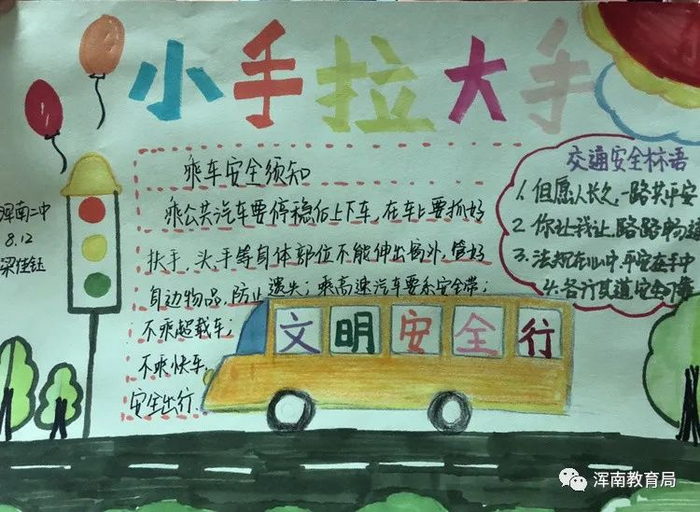 小手拉大手
乘车安全须知
乘公共汽车要停稳后上下车,在车上要抓好
扶手,头、手等身体部位不能伸出窗外,管好
自边物品,防止遗失;乘高速汽车要系安全带;
不乘超载车;
不乘快车,
安全出行.
交通安全标语
1.但愿人长久,一路共平安
2.你让我让,路路畅通
3.法规在心中,平安在手中
4.各行其道安全可靠
浑南二中
8.12
梁佳钰
文明安全行
浑南教育局